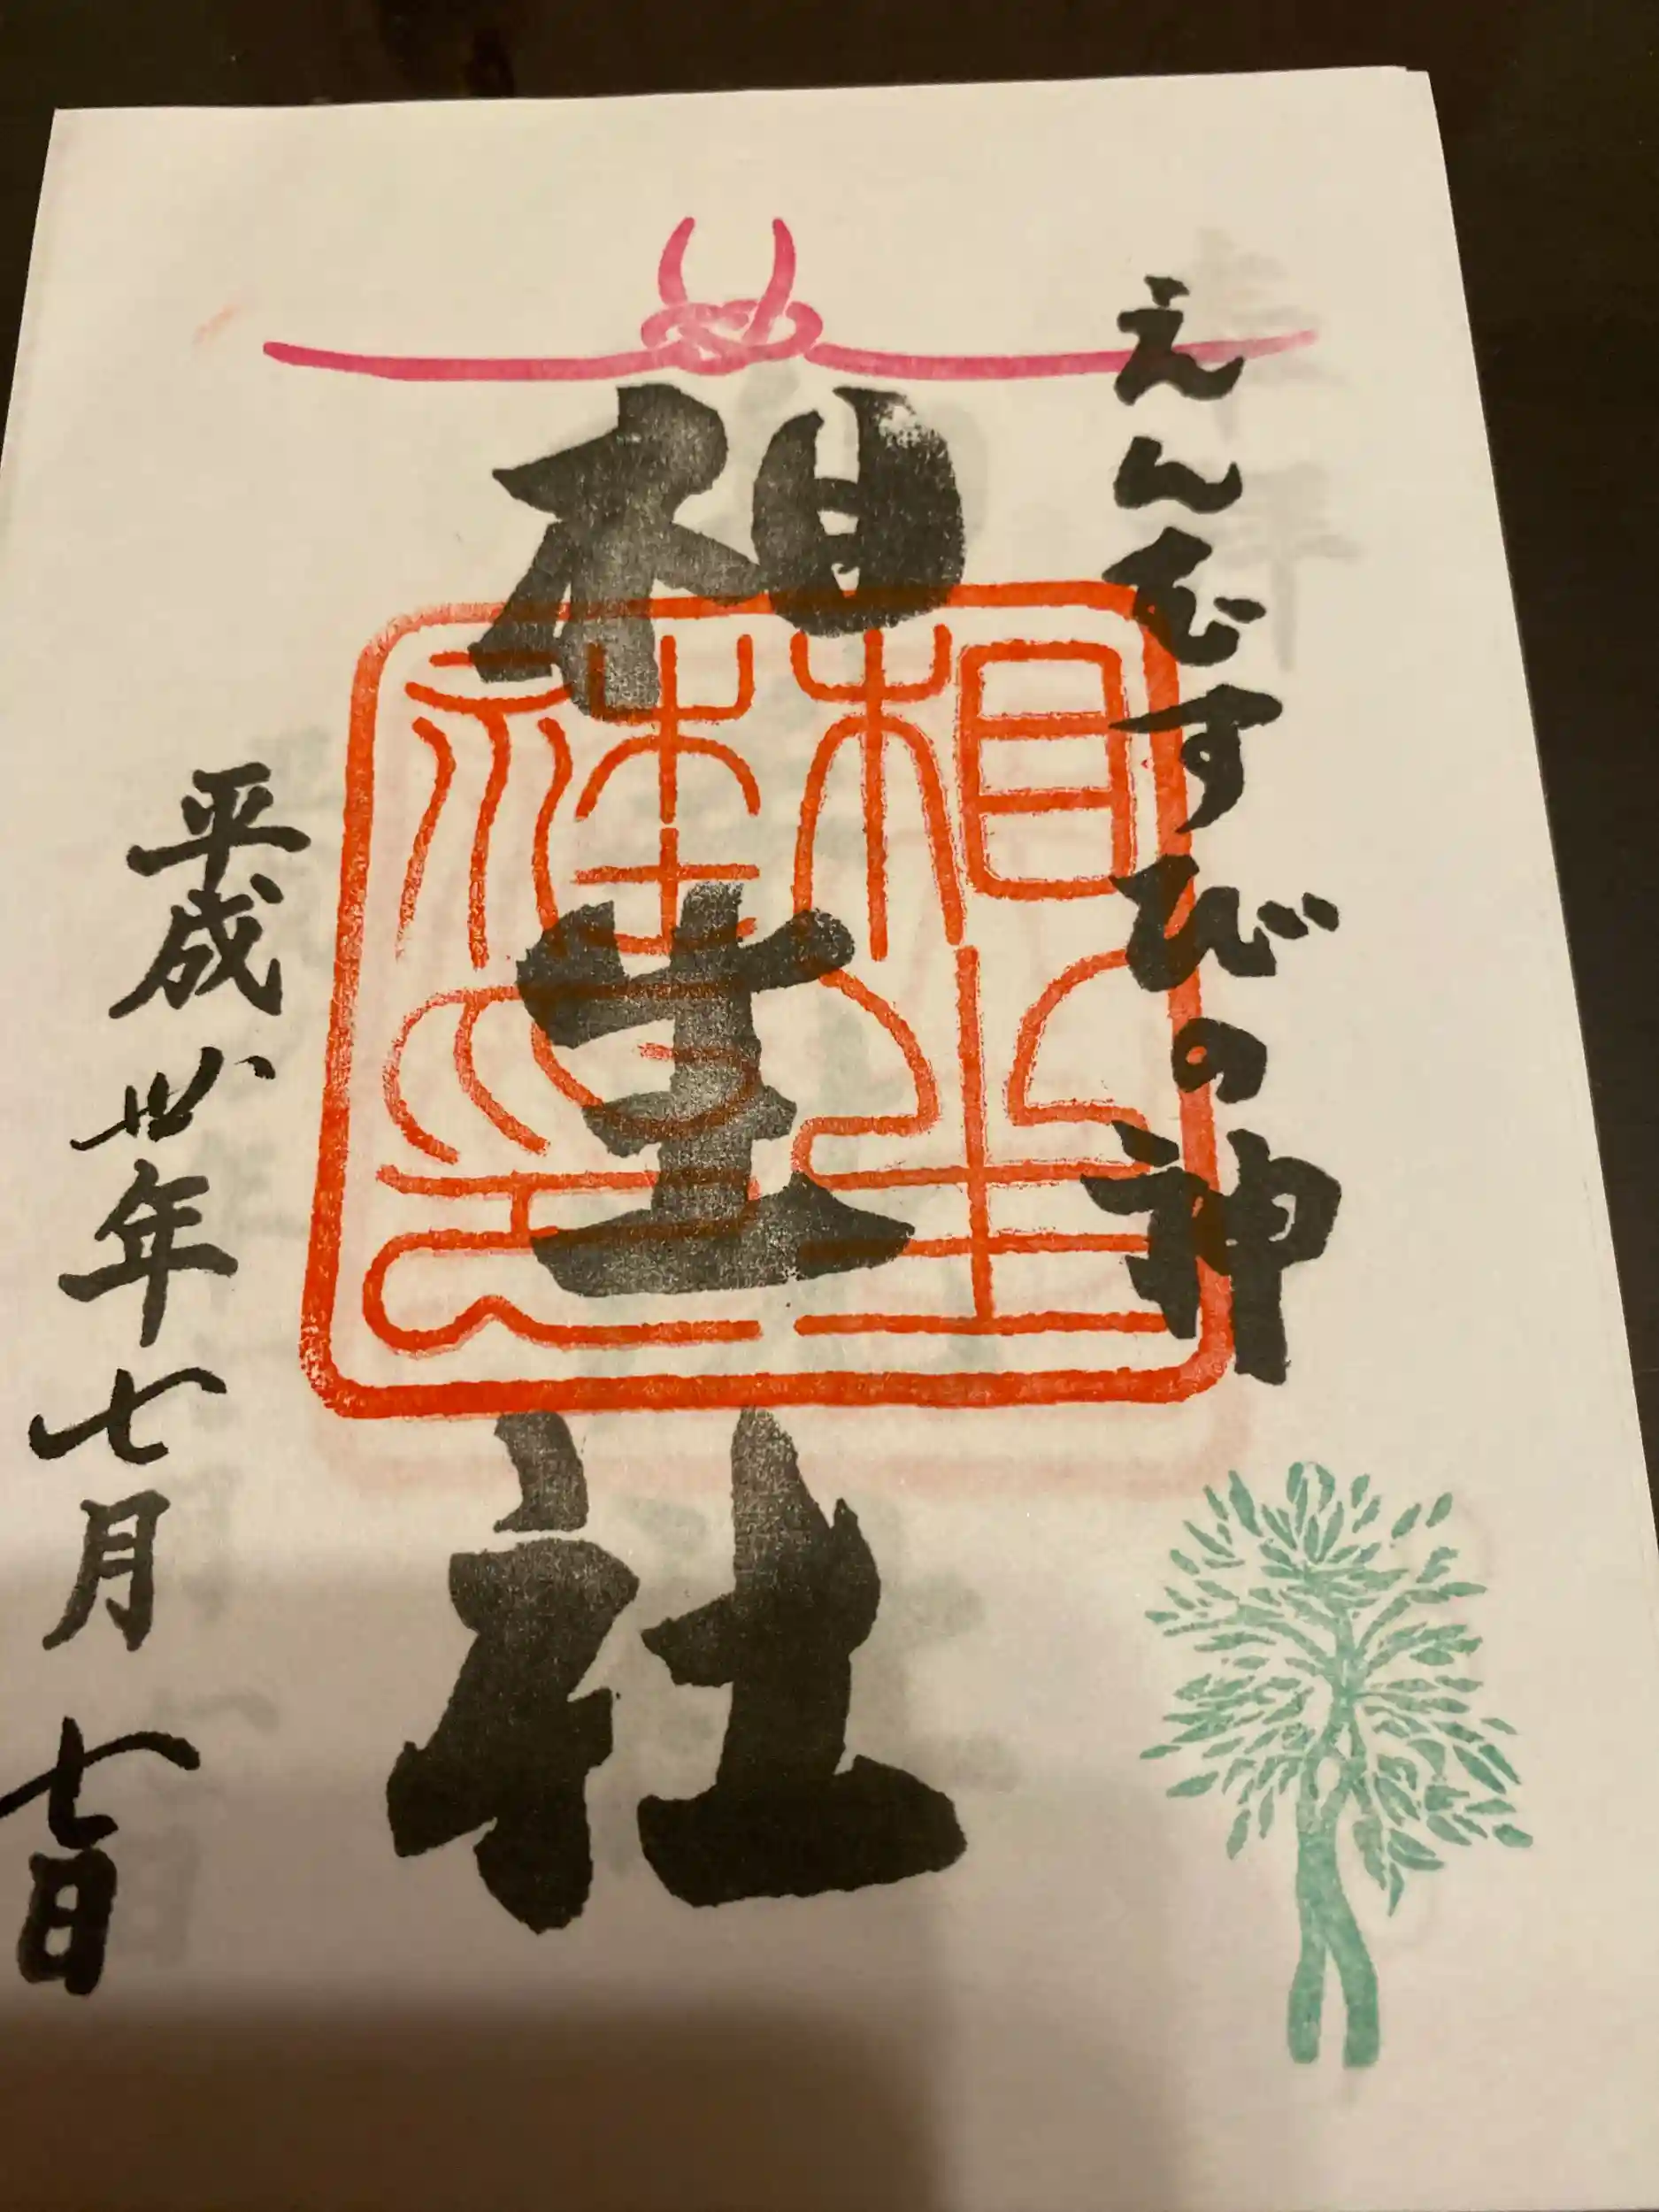 えんむすびの神
相生社
相生社神璽
平成卅年七月七日